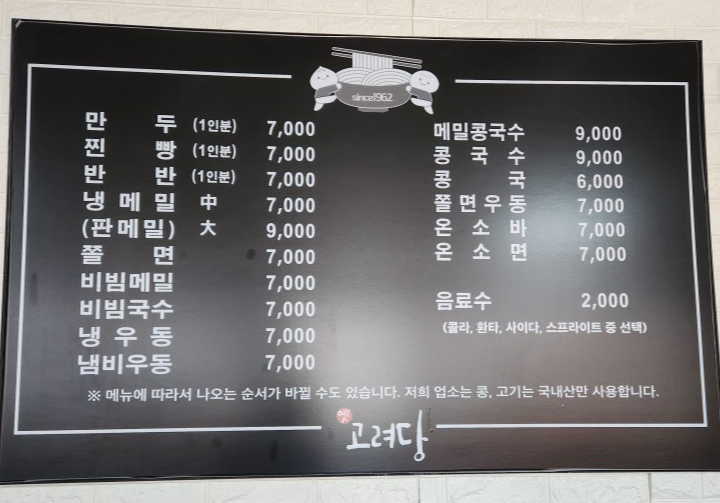 since1962
만 두 (1인분) 7,000
찐 빵 (1인분) 7,000
반 반 (1인분) 7,000
냉 메 밀 中 7,000
(판메밀) 大 9,000
쫄 면 7,000
비빔메밀 7,000
비빔국수 7,000
냉 우 동 7,000
냄비우동 7,000
메밀콩국수 9,000
콩 국 수 9,000
콩 국 6,000
쫄면우동 7,000
온 소 바 7,000
온 소 면 7,000
음료수 2,000
(콜라, 환타, 사이다, 스프라이트 중 선택)
※ 메뉴에 따라서 나오는 순서가 바뀔 수도 있습니다. 저희 업소는 콩, 고기는 국내산만 사용합니다.
고려당